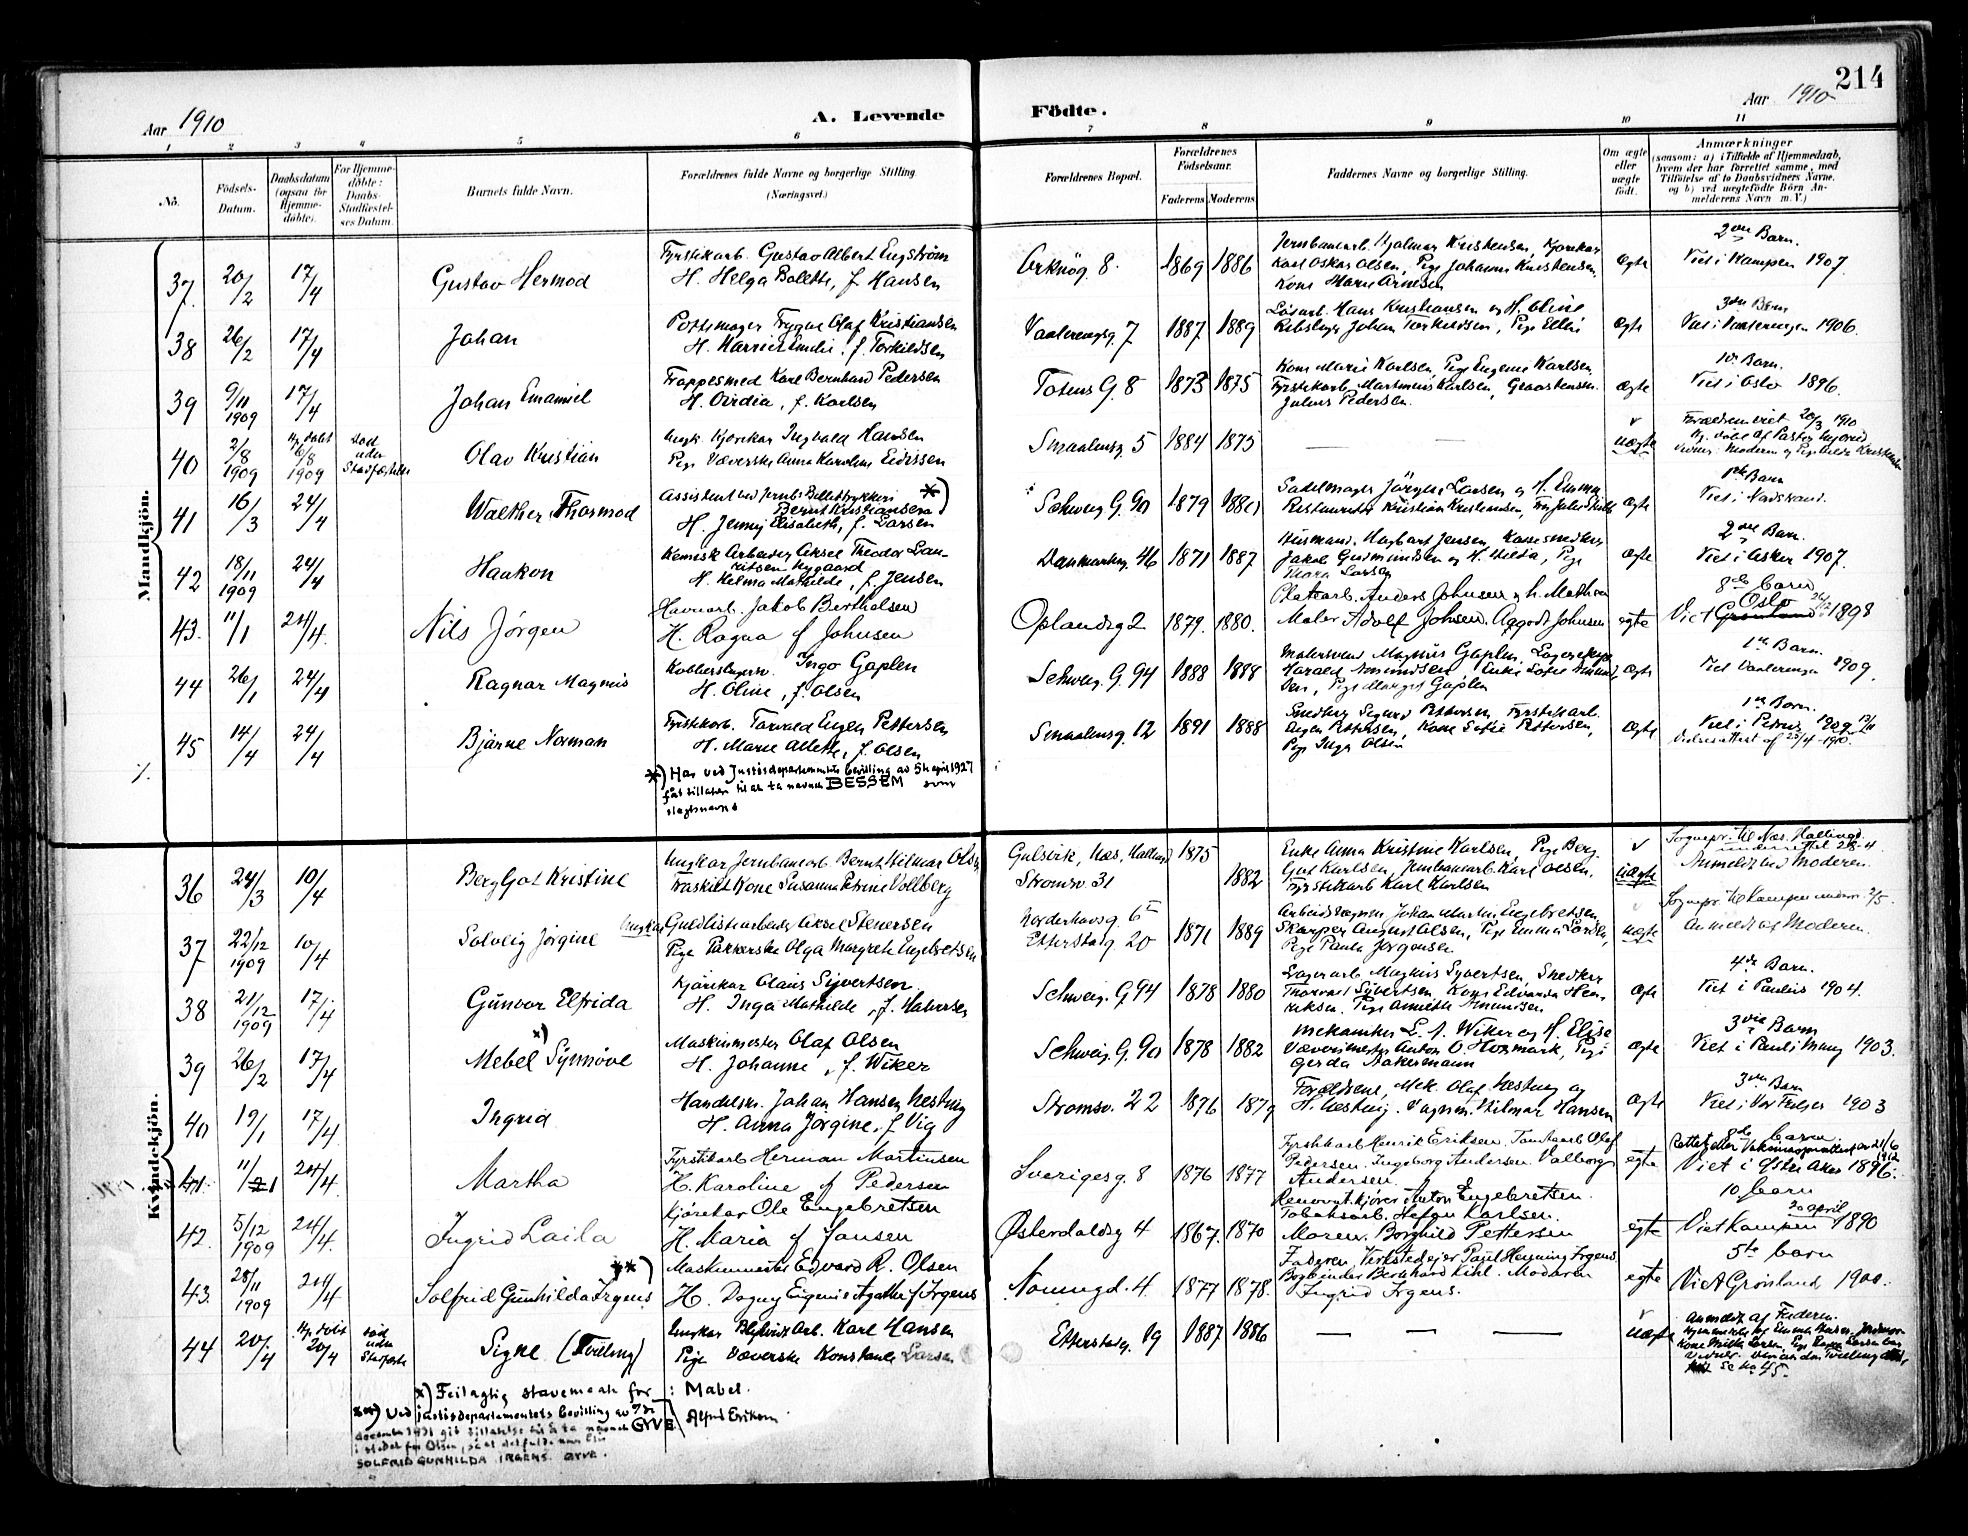 214
Aar 1910
A. Levende
Födte.
Aar 1910
1 2 3 4 5 6 7 8 9 10 11
No.
Födsels-
Datum.
Daabsdatum
(ogsaa for
Hjemme-
döbte).
For Hjemme-
döbte:
Daabs-
Stadfæstel-
ses Datum.
Barnets fulde Navn.
Forældrenes fulde Navne og borgerlige Stilling
(Næringsvei.)
Forældrenes Bopæl.
Forældrenes
Födselsaar.
Faderens
Moderens
Faddernes Navne og borgerlige Stilling.
Om ægte
eller
uægte
födt.
Anmærkninger
(saasom: a) i Tilfælde af Hjemmedaab,
hvem der har forrettet samme, med
Tilföielse af to Daabsvidners Navne.
og b) ved uegtefödte Börn An-
melderens Navn m. V.)
Mandkjön.
37 20/2 17/4 Gustav Hermod
Fyrstikarb. Gustav Albert Engström
H. Helga Bolette, f. Hansen
8. 1869 1886
Jernbanearb. Hjalmar Kristensen, Kjørekar
Karl Oskar Olsen, Pige Johanne Kristensen,
Kone Marie Arnesen
ægte
2den Barn.
Viet i Kampen 1907.
38 26/2 17/4 Johan
Pottemager Trygve Olaf Kristiansen
H. Harriet Emilie, f. Torkildsen
Vaalerengg. 7 1887 1889
Løsarb. Hans Kristiansen og H. Oline
Rebslager Johan Torkildsen, Pige Ellen
ægte
3die Barn
Viet i Vaalerengen 1906.
39 9/11 1909 17/4 Johan Emanuel
Trappesmed Karl Bernhard Pedersen
H. Ovidia, f. Karlsen
Totens G. 8 1873 1875
Kone Marie Karlsen, Pige Eugenie Karlsen
Fyrstikarb. Martinius Karlsen,
Julius Pedersen.
ægte
10de Barn.
Viet i Oslo 1896.
40 2/8 1909 Hj. døbt /8 1909
død
uden
Stadfæstelse
Olav Kristian
Ungk. Kjørekar Ingvald Hansen
Pige Væverske Anna Karoline Eidissen
Smaalensg. 5 1884 1875
— —
uægte
Forældrene viet 20/3 1910
Hj. døbt af Pastor
Vidner: Moderen og Pige Hilda Kristensen
41 16/3 24/4 Walther Thormod
Assistent ved Jernb. Billettrykkeri *)
Bernt Kristiansen
H. Jenny Elisabeth, f. Larsen
Schweig. G. 90 1879 1880
Sadelmager Jörgen Larsen og H. Emma
Kristian Kristiansen,
ægte
1ste Barn
Viet i Nordstrand.
42 18/11 1909 24/4 Haakon
Kemisk Arbeider Aksel Theodor Lau-
ritsen Nygaard
H. Helma Mathilde, f. Jensen
Danmarksg. 46 1871 1887
Husmand. Hagbart Jensen,
Jakob Gudmundsen og H. Hilda, Pige
Thora Larsen
ægte
2den Barn.
Viet i Asker 1907.
43. 11/1 24/4. Nils Jörgen
Havnearb. Jakob Bertholsen
H. Ragna f Johnsen
Oplandsg 2 1879. 1880.
Platearb. Anders Johnsen og h. Mathea
Maler Adolf Johnsen. Aagodt Johnsen
egte
8de barn
Oslo
Viet Grønland 1898
44 26/1 24/4 Ragnar Magnus
Kobberslagersv. Ingo Gaplen
H. Oline, f. Olsen
Schweig. G. 94 1888 1888
Malersvend Magnus Gaplen,
Harald Amundsen Enke Sofie Amund-
sen, Pige Margit Gaplen
ægte
1ste Barn.
Viet Vaalerengen 1909.
45 14/4 24/4 Bjarne Norman
Fyrstikarb. Torvald Eugen Pettersen
H. Marie Alette, f. Olsen
Smaalensg. 12 1891 1888
Smedlærl. Sigurd Pettersen, Fyrstikarb.
Eugen Pettersen, Kone Sofie Pettersen,
Pige Inga Olsen
ægte
1ste Barn.
Viet i Petrus 1909
Vielsesattest af 25/4-1910.
*) Har ved Justisdepartementets bevilling av 5te april 1927
fåt tillatelse til at ta navnet BESSEM som
slegtsnavn
Kvindekjön.
36 24/3 10/4 Bergljot Kristine
Ungkar Jernbanearb Bernt Hilmar Olsen
Fraskilt Kone Susanna Petrine Vollberg
Gulsvik, Næs, Halling 1875
Stromsv. 31 1882
Enke Anna Kristine Karlsen, Pige Berg-
ljot Karlsen, Jernbanearb. Karl Olsen,
Fyrstikarb Karl Karlsen
uægte
Sognepr. til Næs, Hallingd.
underrettet 28-4
Anmeldt ved Moderen.
37 22/12 1909 10/4 Solveig Jørgine
Ungkar Guldlistearbeider Aksel Stenersen
Pige Pakkerske Olga Margrete Engebretsen
Norderhovsg. 6
Etterstadg. 20 1871 1889
Johan Martin Engebretsen,
August Olsen, Pige Emma Larsen,
Pige Paula Jörgensen
uegte
Sognepr. til Kampen underr. 2/5.
Anmeldt af Moderen.
38 21/12 1909 17/4 Gunvor Elfrida
Kjørekar Olaus Syvertsen
H. Inga Mathilde, f. Halvorsen
Schweig. G. 94 1878 1880
Lagerarb. Magnus Syvertsen, Snedker
Thorvald Syvertsen, Kone Edvarda Hen-
riksen, Pige Annette Amundsen
ægte
4de Barn.
Viet i Paulus 1904.
39 26/2 17/4 Mebel x) Synnøve
Maskinmester Olaf Olsen
H. Johanne, f. Wiker
Schweig. G. 90 1878 1882
Mekaniker L. A. Wiker og H. Elise
Vævermester Anton O. Hormark, Pige
Gerda Aakermann
ægte
3die Barn
Viet i Pauli Meng 1903.
40 19/1 17/4 Ingrid
Handelsr. Johan Hansen Næstvig
H. Anna Jørgine, f Vig
Stromsv. 22 1876 1879
Forældrene, Mek. Olaf Næstvig og
H. Næstvig. Vognm. Hilmar Hansen
ægte
3die Barn
Viet i Vor Frelser 1903
41. 11/1 24/4. Martha
Fyrstikarb Herman Martinsen
H. Karoline f Pedersen
Sverigesg. 8 1876 1877
Fyrstikarb Henrik Eriksen. Tomtearb Olaf
Pedersen. Ingeborg Andersen. Valborg
Andersen.
egte
8de barn.
Rettet efter Vaksinasjonsattest av 21/6 1912
Viet i Østre Aker 1896.
42. 5/12 1909 24/4. Ingrid Laila
kjørekar Ole Engebretsen
H. Maria f Jansen
Østerdalsg 4 1867. 1870
Renovat.kjører Anton Engebretsen.
Tobaksarb. Hefan Karlsen.
Maren. Borghild Pettersen
egte
10 barn
20 april
Viet Kampen 1890
43. 28/11 1909 24/4. Solfrid Gunhilda Irgens **)
Maskinmester Edvard R. Olsen
H. Dagny Eugenie Agathe f Irgens
4. 1877 1878.
Faderen, Verkstedeier Paul Henning Irgens
Bogbinder Bernhard Kihl. Moderen
Ingrid Irgens.
egte
5te barn
Viet Grønland 1900.
44 20/4 Hj. døbt 20/4
død
uden
Stadfæste
Signe (Tvilling)
Ungkar Arb. Karl Hansen
Pige Væverske Konstanse Larsen
Etterstadg. 19 1887 1886
— — —
uægte
Anmeldt af Faderen.
Se No 45.
x) Feilagtig stavemaate for: Mabel.
**) Ved justisdepartementets bevilling av 7de
december 1931 git tillatelse til å ta navnet GYVE
i stedet for Olsen, så at det fulde navn blir
SOLFRID GUNHILDA IRGENS GYVE.
Alfred Eriksen.